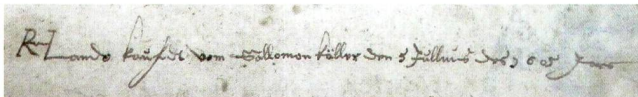 kaufds vom Sallomon Köller den 5 Jullius des 1605 Jars